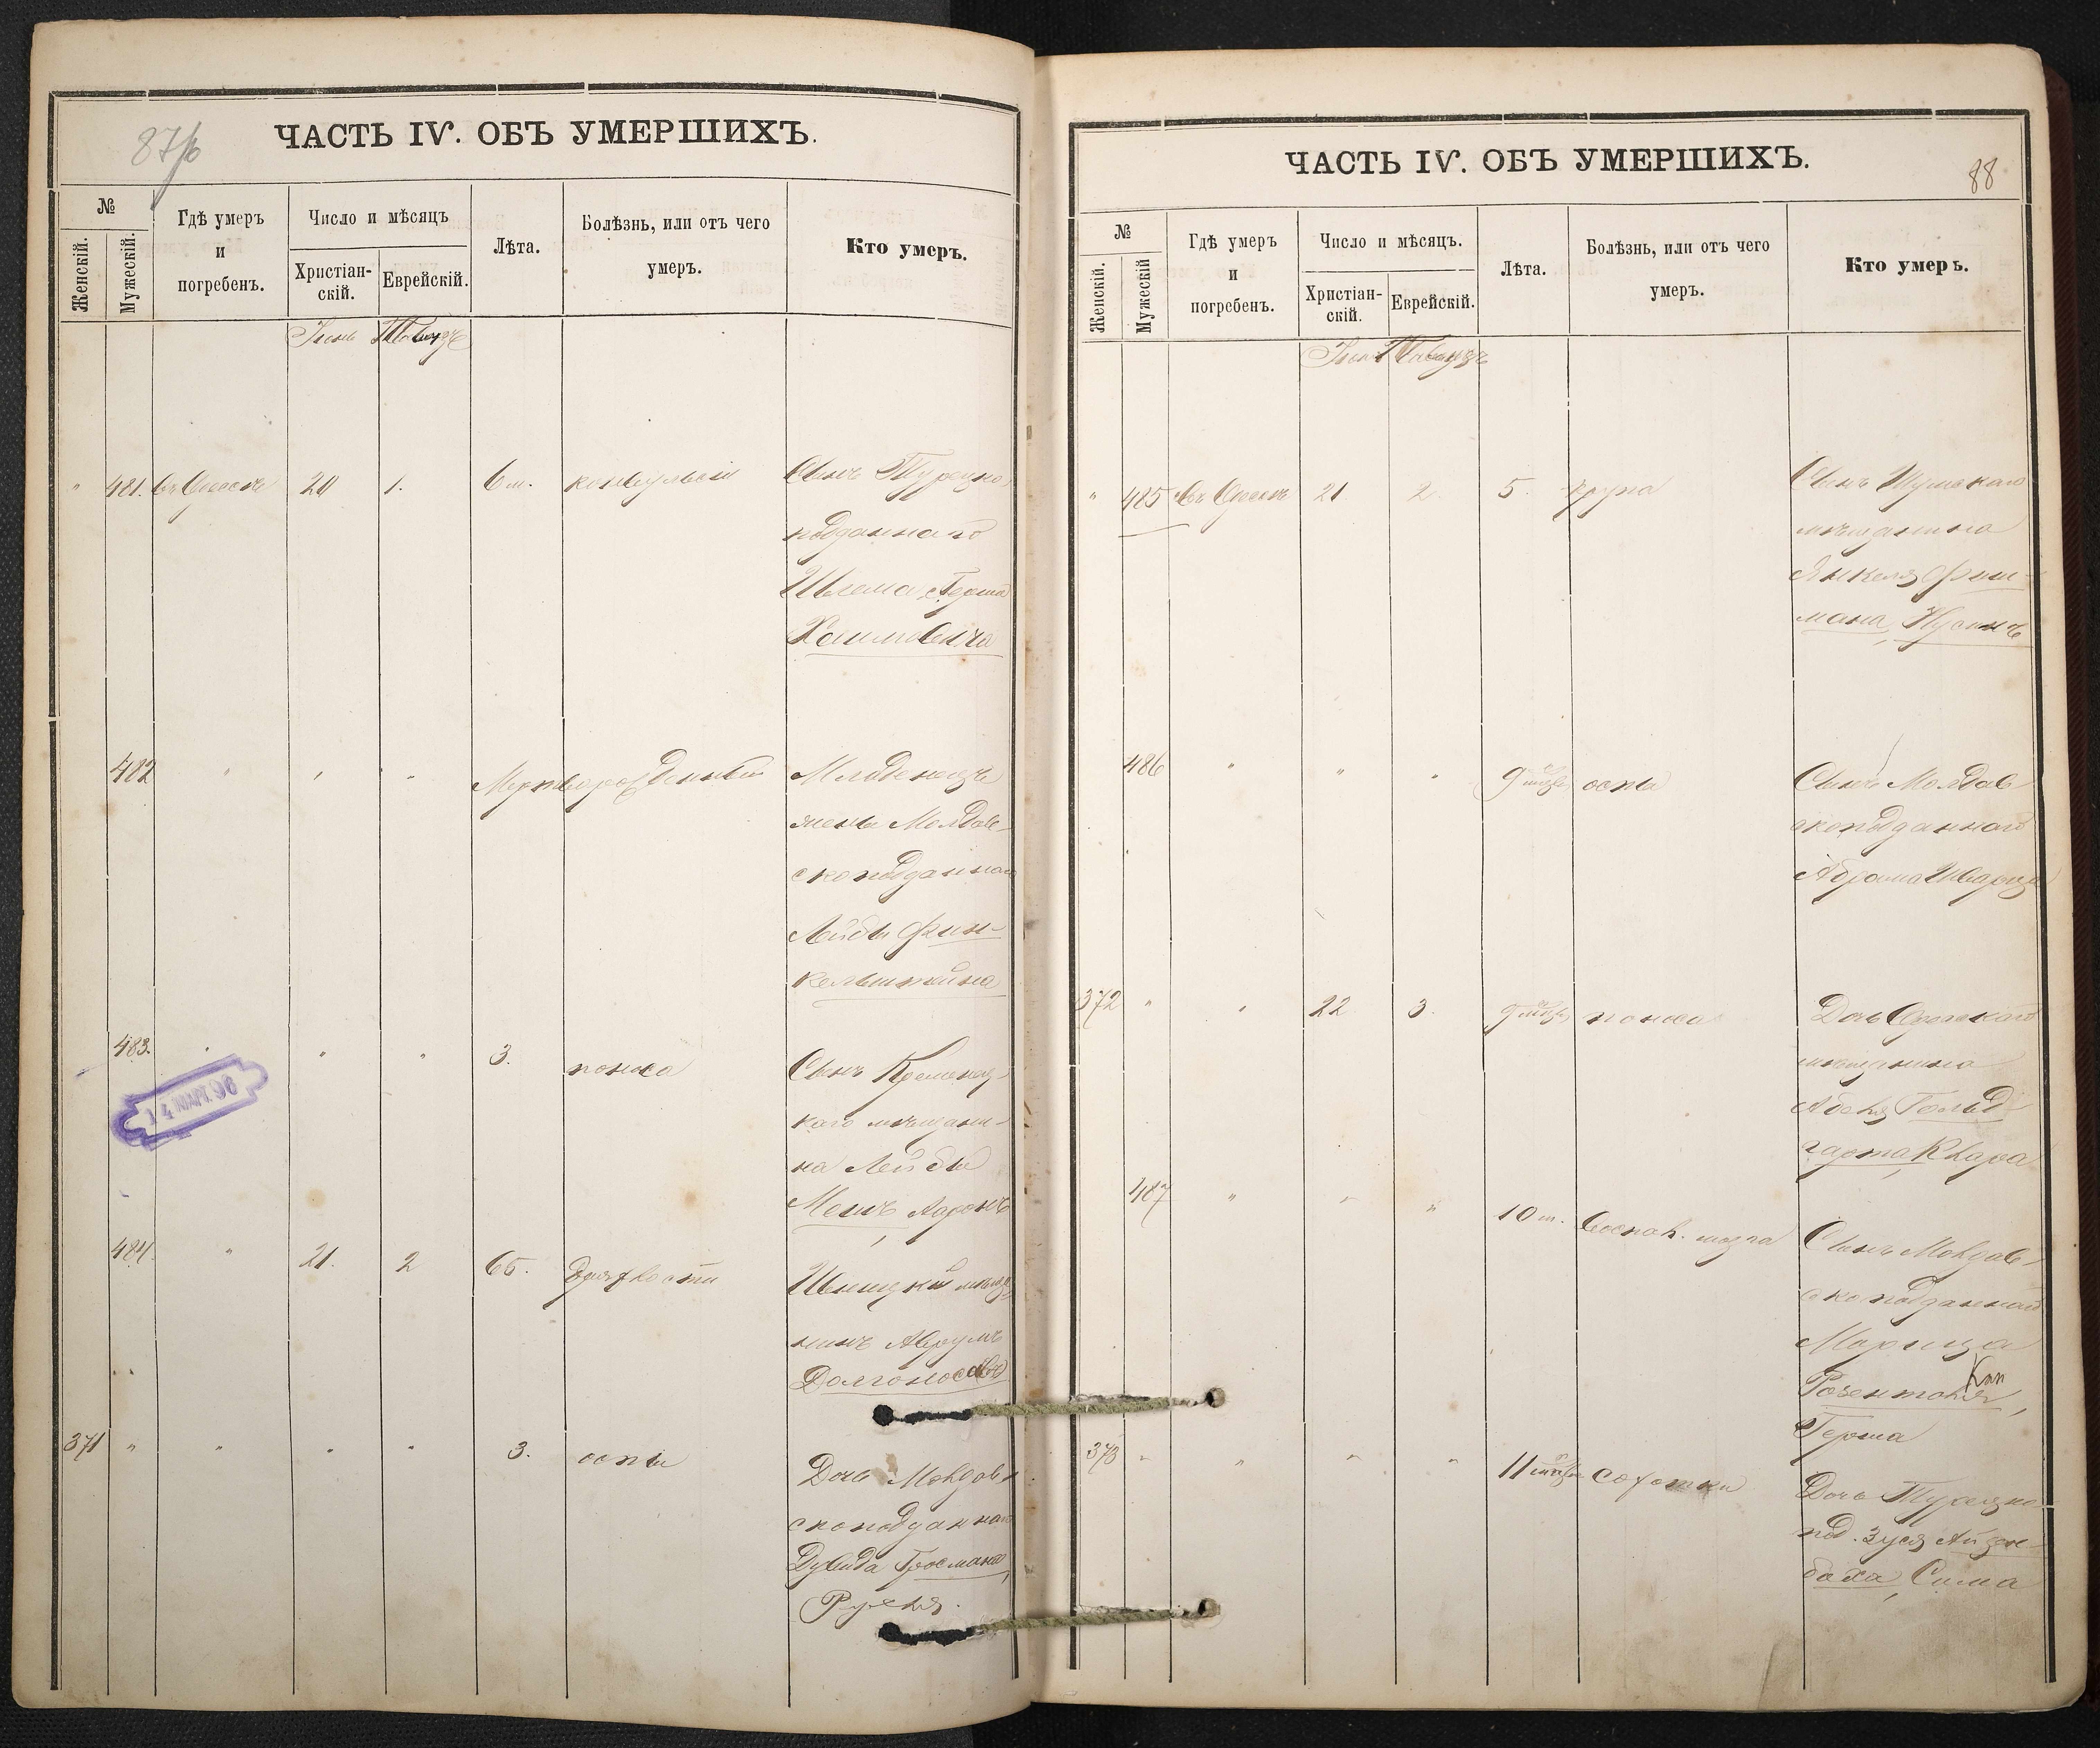 87/б
ЧАСТЬ IV. ОБЪ УМЕРШИХЪ.
№
Женскій.
Мужескій.
Гдѣ умеръ
и
погребенъ.
Число и мѣсяцъ
Христіан-
скій.
Еврейскій.
Лѣта.
Болѣзнь, или отъ чего
умеръ.
Кто умеръ.
Іюнь Тамузъ
" 481. въ Одессѣ 20 1. 6 м. конвульсіи Сынъ Турецко
подданнаго
Шлема Герша
Хаимовича
482 " " " Мертворожденный Младенецъ
жены Молдав-
скоподданнаго
Лейбы Фин-
кельштейна
483. " " " 3. поноса Сынъ Кременец-
каго мѣщани-
на Лейбы
Ааронъ
14 МАР. 96
484. " 21. 2 65. дряхлости мѣща
нинъ Аврумъ
Долгоносовъ
371 " " " " 3. оспы Дочь Молдав
скоподданнаго
Дувида Гросмана,
Рухля.
ЧАСТЬ IV. ОБЪ УМЕРШИХЪ.
88
№
Женскій.
Мужескій
Гдѣ умеръ
и
погребенъ.
Число и мѣсяцъ.
Христіан-
скій.
Еврейскій.
Лѣта.
Болѣзнь, или отъ чего
умеръ.
Кто умеръ.
Іюнь Тамузъ
" 485 въ Одессѣ 21. 2. 5. крупа Сынъ Шумскаго
мѣщанина
Янкеля Фиш-
мана, Нусинъ
486 " " " 9 мѣсц оспы Сынъ Молдав
скоподданнаго
Абрама Шварца
372 " " 22 3. 9 мѣсц поноса Дочь Одесскаго
мѣщанина
Абеля Гольд-
гарта, Клара
487 " " " 10 м. воспал. мозга Сынъ Молдав-
скоподданнаго
Морица
Розенталя,
Герша
373 " " " " 11 мѣсц сухотки Дочь Турецко
под. Зуся Айзен-
баха, Сима